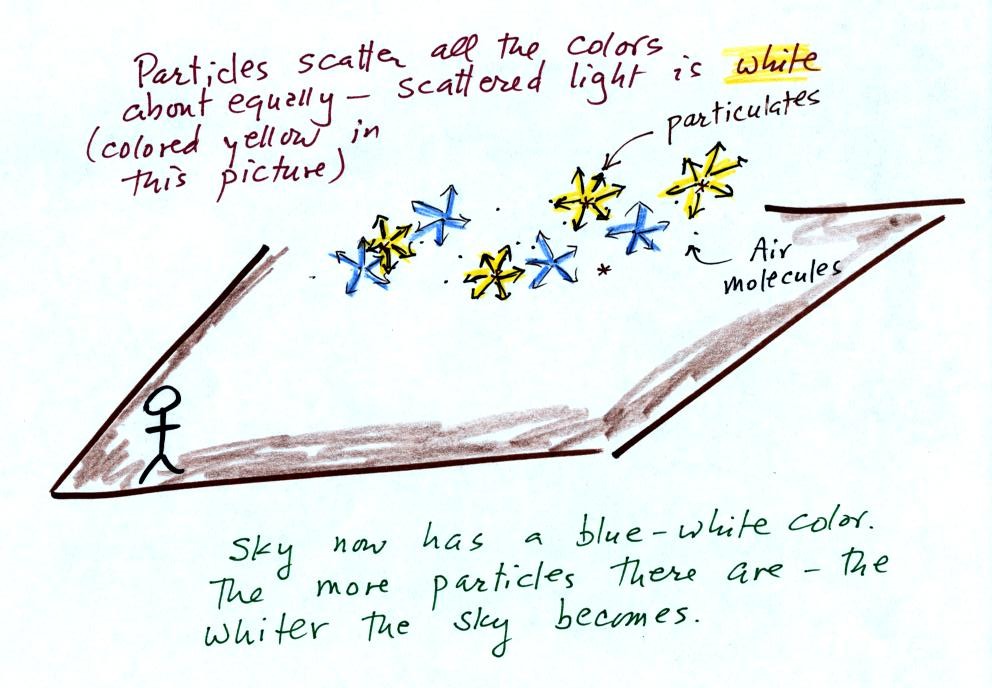 Particles scatter all the colors
about equally — scattered light is white
(colored yellow in
this picture)
particulates
Air
molecules
Sky now has a blue-white color.
The more particles there are — the
whiter the sky becomes.